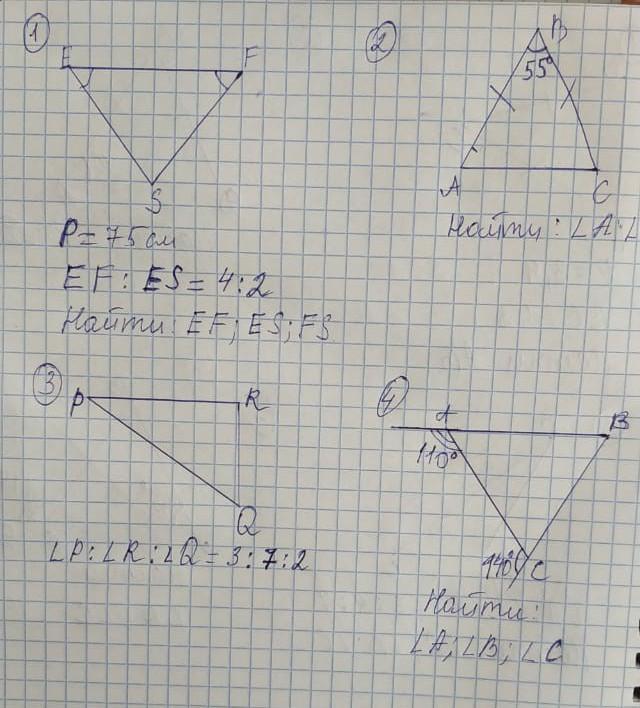 1
E F
S
P = 75 см
EF : ES = 4 : 2
Найти: EF; ES; FS
2
B
55°
A C
Найти: ∠A; ∠
3
P R
Q
∠P : ∠R : ∠Q = 3 : 7 : 2
4
A B
110°
140° C
Найти:
∠A; ∠B; ∠C